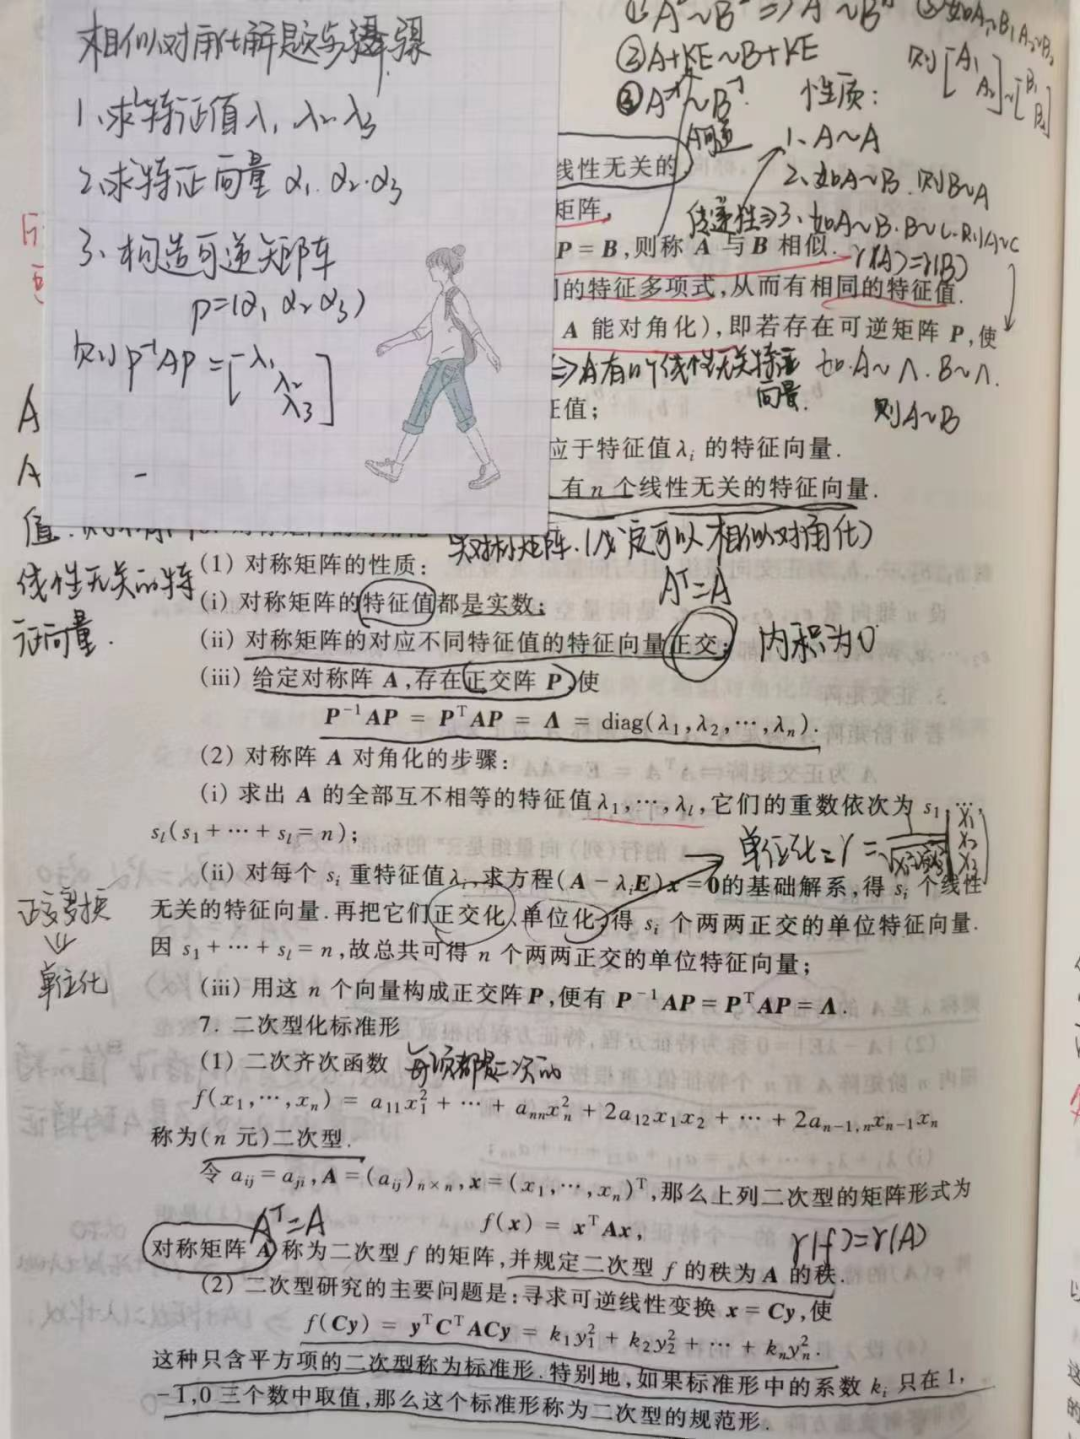 相似对角化解题步骤
1、求特征值λ₁ λ₂ λ₃
2、求特征向量α₁.α₂.α₃
3、构造可逆矩阵
P=(α₁ α₂ α₃)
则P⁻¹AP=[λ₁ λ₂ λ₃]
②A+KE~B+KE
③A⁻¹~B⁻¹
A可逆
则[A₁ A₂]~[B₁ B₂]
性质:
1、A~A
2、如A~B.则B~A
传递性⇒3、如A~B.B~C.则A~C
r(A)=r(B)
线性无关的
矩阵,
P = B,则称 A 与 B 相似.
的特征多项式,从而有相同的特征值.
A 能对角化),即若存在可逆矩阵 P,使
⇒A有n个线性无关特征向量.
如.A~Λ.B~Λ.
则A~B
征值;
应于特征值λᵢ 的特征向量.
有 n 个线性无关的特征向量.
A
A
值.
线性无关的特
征向量.
实对称矩阵.(一定可以相似对角化)
Aᵀ=A
(1) 对称矩阵的性质:
(i) 对称矩阵的特征值都是实数;
(ii) 对称矩阵的对应不同特征值的特征向量正交;
内积为0
(iii) 给定对称阵 A,存在正交阵 P,使
P⁻¹AP = PᵀAP = Λ = diag(λ₁,λ₂,⋯,λₙ).
(2) 对称阵 A 对角化的步骤:
(i) 求出 A 的全部互不相等的特征值λ₁,⋯,λₗ,它们的重数依次为 s₁,⋯,
sₗ(s₁+⋯+sₗ=n);
单位化:γ=
(ii) 对每个 sᵢ 重特征值λᵢ,求方程(A-λᵢE)x=0的基础解系,得 sᵢ 个线性
无关的特征向量.再把它们正交化、单位化,得 sᵢ 个两两正交的单位特征向量.
因 s₁+⋯+sₗ=n,故总共可得 n 个两两正交的单位特征向量;
正交变换
⇓
单位化
(iii) 用这 n 个向量构成正交阵P,便有 P⁻¹AP=PᵀAP=Λ.
7. 二次型化标准形
(1) 二次齐次函数
每项都是二次的
f(x₁,⋯,xₙ) = a₁₁x₁² + ⋯ + aₙₙxₙ² + 2a₁₂x₁x₂ + ⋯ + 2aₙ₋₁,ₙxₙ₋₁xₙ
称为(n 元)二次型.
令 aᵢⱼ=aⱼᵢ,A=(aᵢⱼ)ₙ×ₙ,x=(x₁,⋯,xₙ)ᵀ,那么上列二次型的矩阵形式为
Aᵀ=A
f(x) = xᵀAx,
r(f)=r(A)
对称矩阵 A 称为二次型 f 的矩阵,并规定二次型 f 的秩为 A 的秩.
(2) 二次型研究的主要问题是:寻求可逆线性变换 x=Cy,使
f(Cy) = yᵀCᵀACy = k₁y₁² + k₂y₂² + ⋯ + kₙyₙ².
这种只含平方项的二次型称为标准形.特别地,如果标准形中的系数 kᵢ 只在 1,
-1,0 三个数中取值,那么这个标准形称为二次型的规范形.